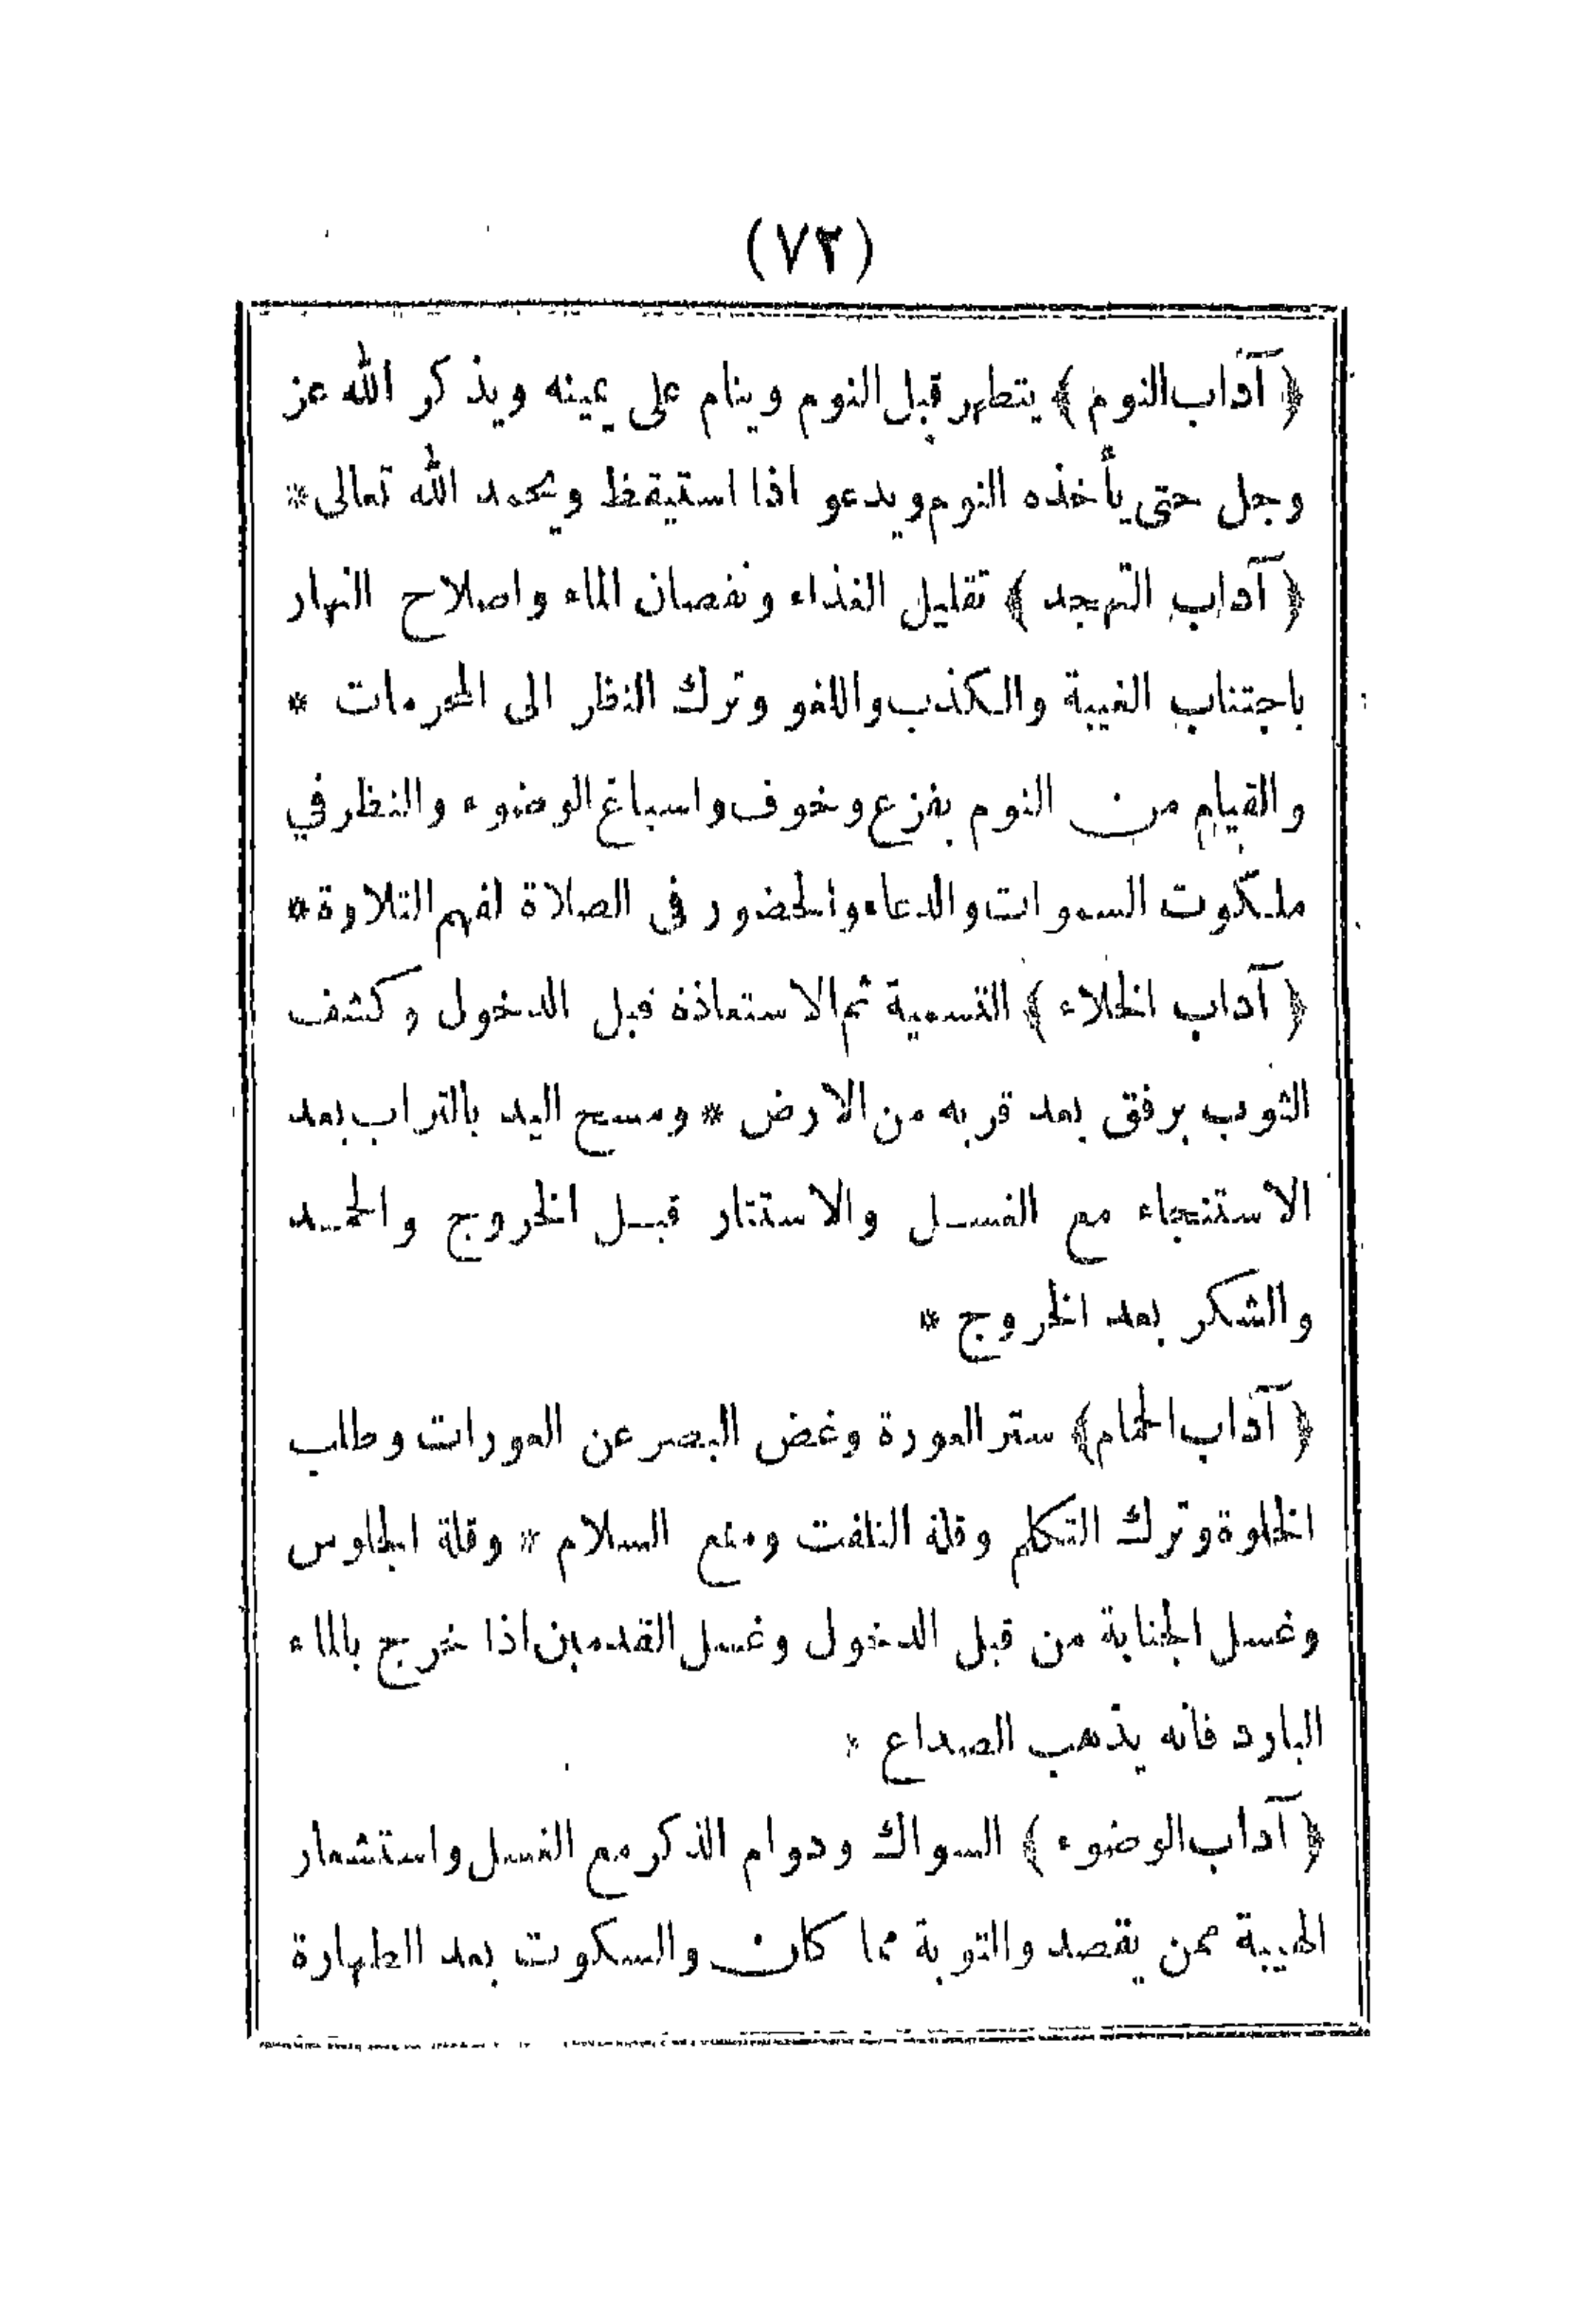 (٧٢)
﴿ آداب النوم ﴾ يتطهر قبل النوم وينام على يمينه ويذكر الله عز
وجل حتى يأخذه النوم ويدعو اذا استيقظ ويحمد الله تعالى *
﴿ آداب التهجد ﴾ تقليل الغذاء ونقصان الماء واصلاح النهار
باجتناب الغيبة والكذب واللغو وترك النظر الى المحرمات *
والقيام من النوم بفزع وخوف واسباغ الوضوء والنظر في
ملكوت السموات والدعاء والحضور في الصلاة لفهم التلاوة *
﴿ آداب الخلاء ﴾ التسمية ثم الاستعاذة قبل الدخول وكشف
الثوب برفق بعد قربه من الارض * ومسح اليد بالتراب بعد
الاستنجاء مع الغسل والاستتار قبل الخروج والحمد
والشكر بعد الخروج *
﴿ آداب الحمام ﴾ ستر العورة وغض البصر عن العورات وطلب
الخلوة وترك التكلم وقلة التلفت ومنع السلام * وقلة الجلوس
وغسل الجنابة من قبل الدخول وغسل القدمين اذا خرج بالماء
البارد فانه يذهب الصداع *
﴿ آداب الوضوء ﴾ السواك ودوام الذكر مع الغسل واستشعار
الهيبة ممن يقصد والتوبة مما كان والسكوت بعد الطهارة